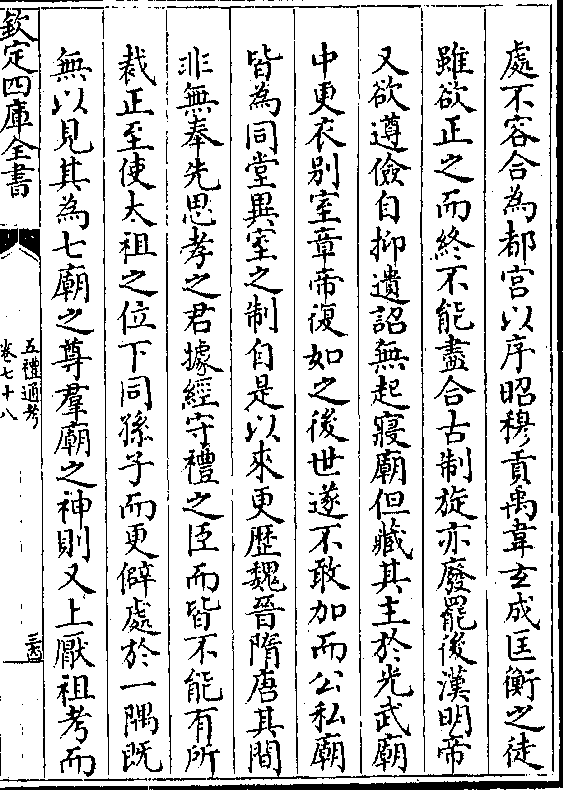 處不容合為都宮以序昭穆貢禹韋玄成匡衡之徒
雖欲正之而終不能盡合古制旋亦廢罷後漢明帝
又欲遵儉自抑遺詔無起寢廟但藏其主於光武廟
中更衣别室章帝復如之後世遂不敢加而公私廟
皆為同堂異室之制自是以來更歴魏晉隋唐其間
非無奉先思孝之君據經守禮之臣而皆不能有所
裁正至使太祖之位下同孫子而更僻處於一隅既
無以見其為七廟之尊羣廟之神則又上厭祖考而
欽定四庫全書
五禮通考
卷七十八